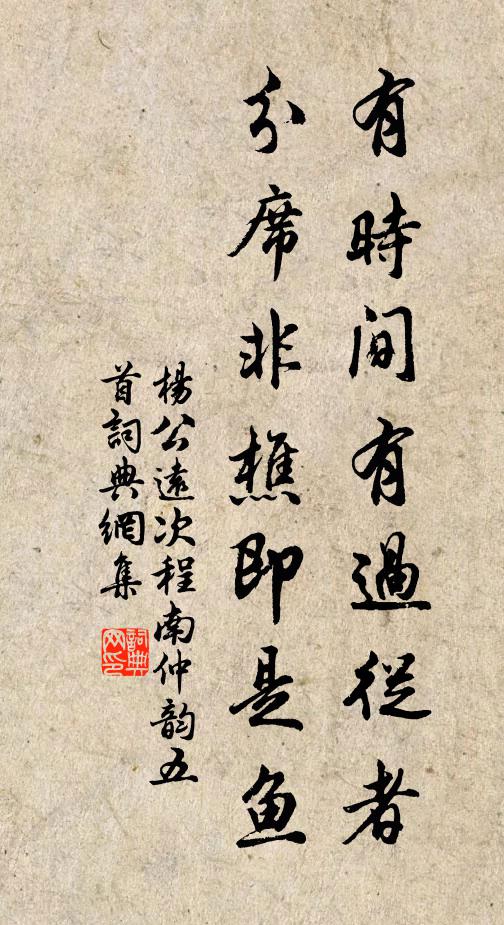 有時間有過從者
分席非樵即是魚
楊公遠次程南仲韵五
首詞典網集
詞典
网印